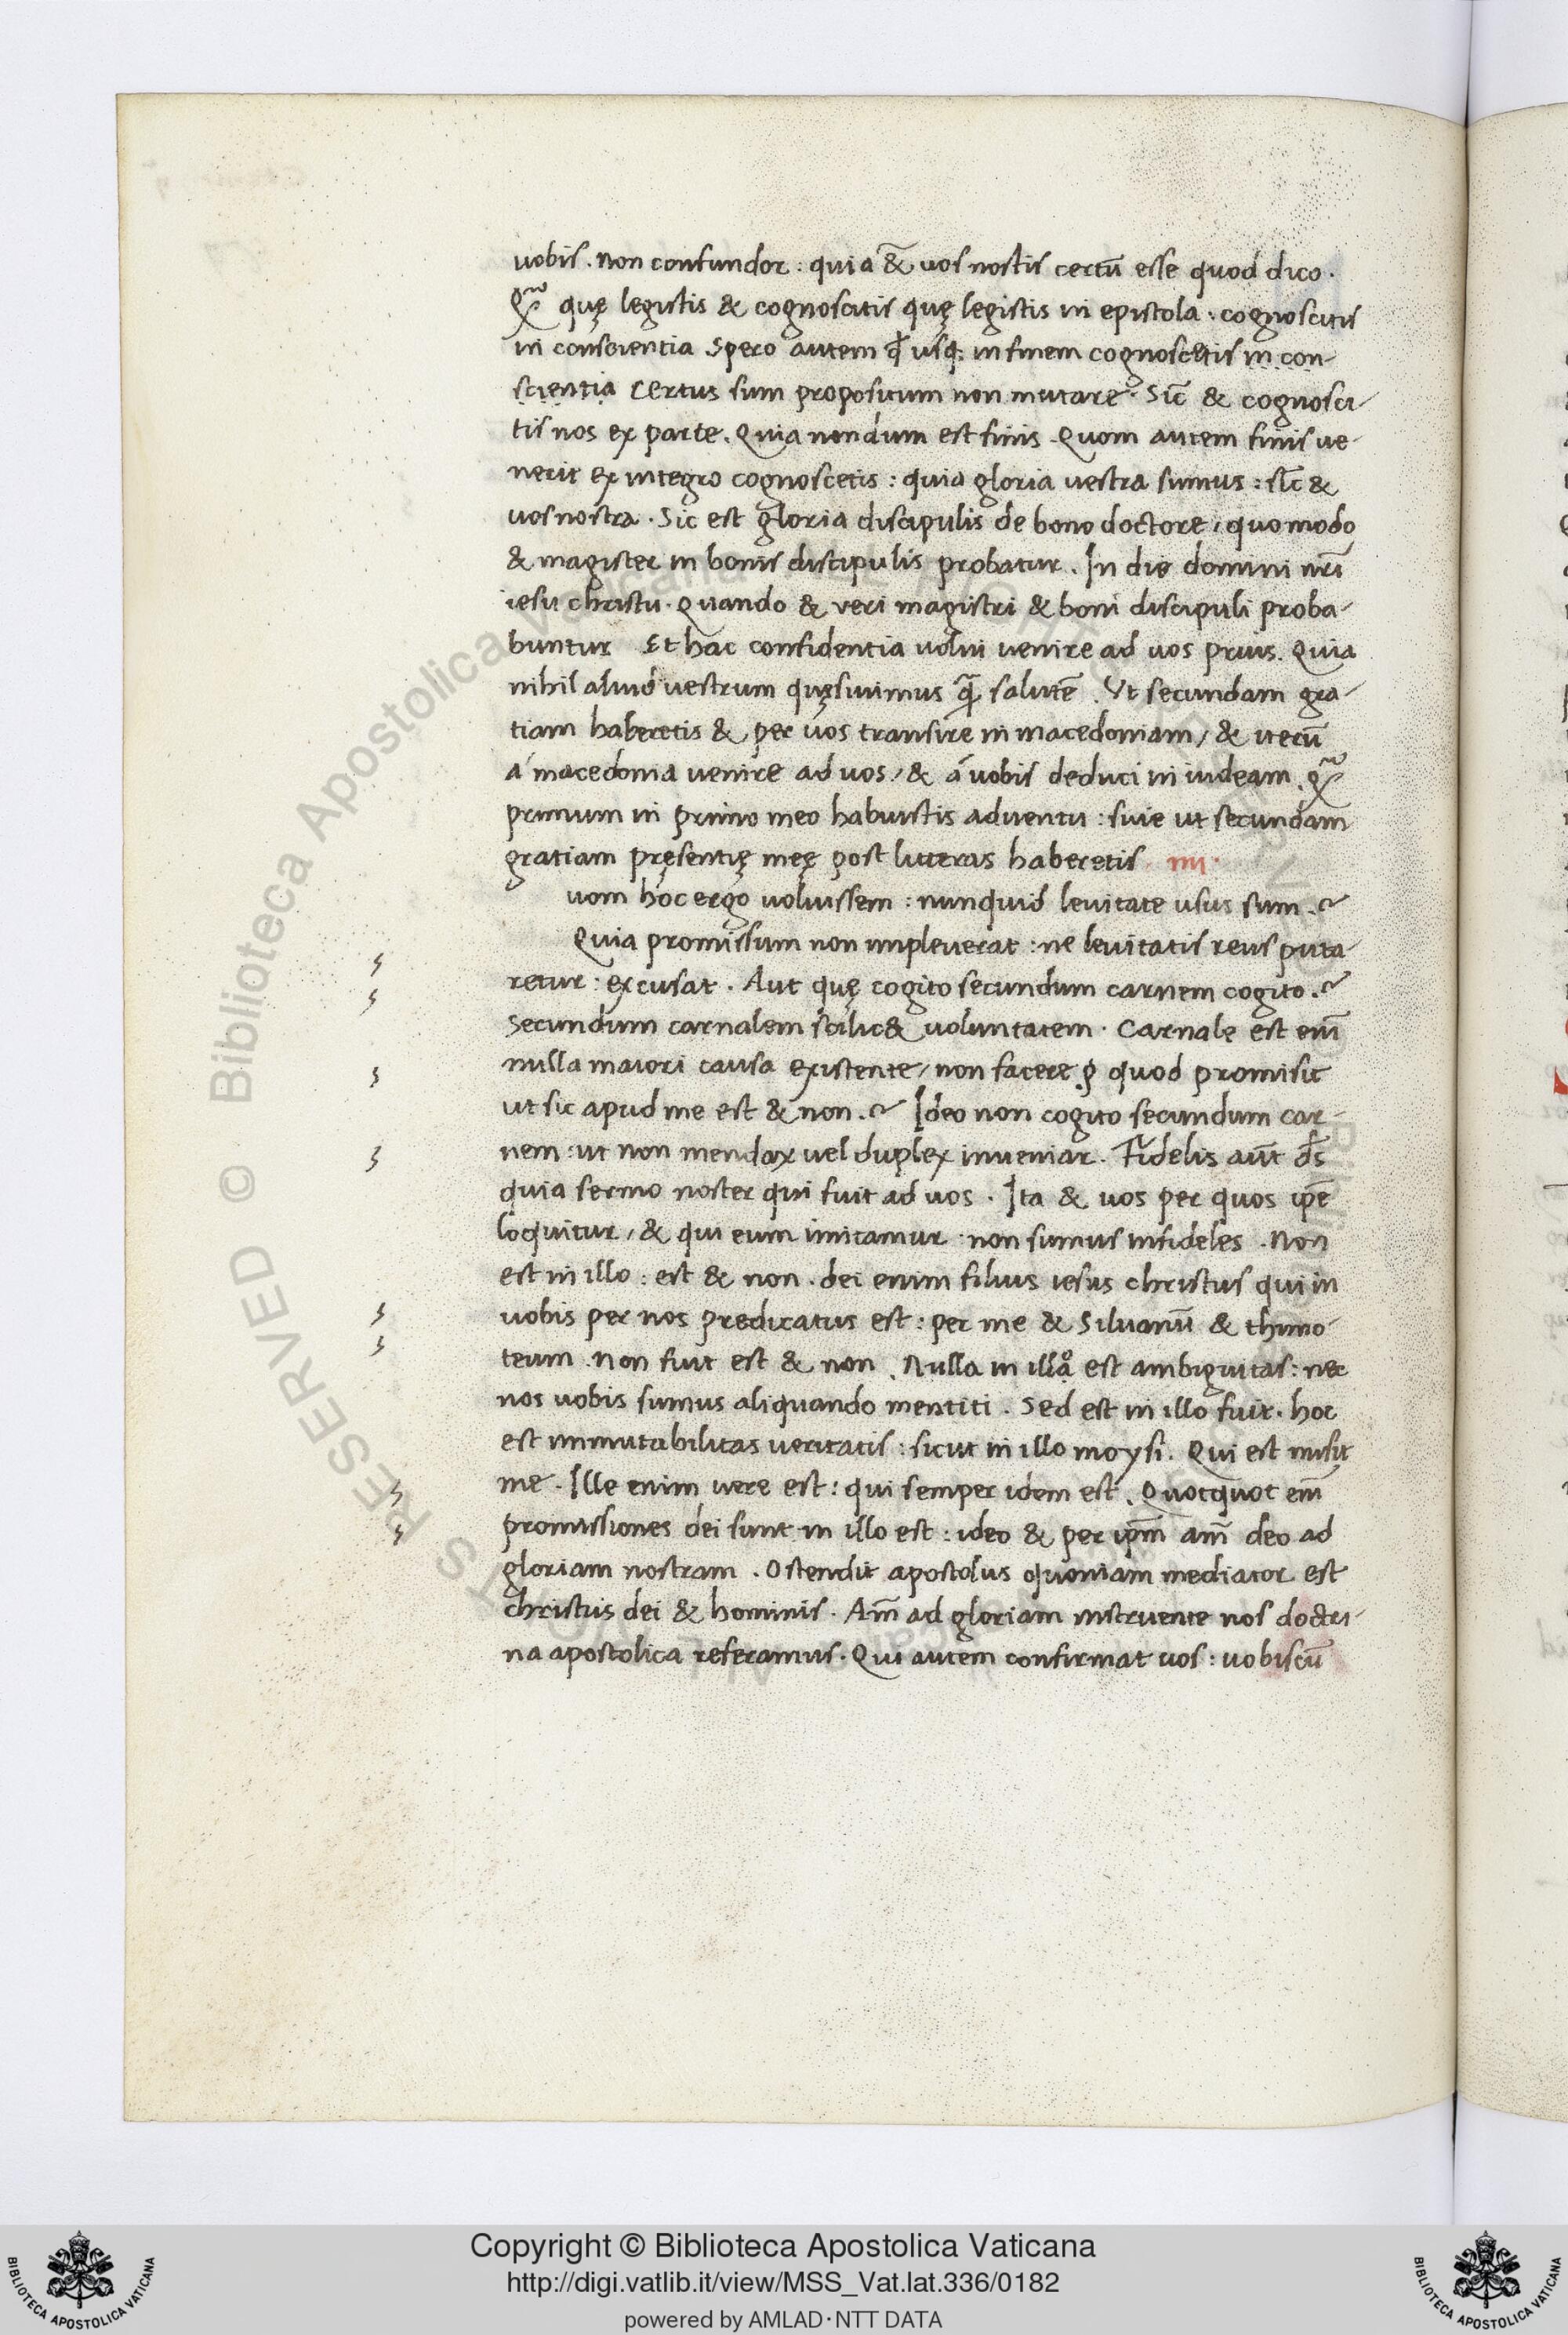 uobis. non confundor: quia & uos nostis certū esse quod dico.
quę legistis & cognoscitis quę legistis in epistola: cognoscitis
in conscientia Spero autem qđ usq; in finem cognoscetis in con-
scientia Certus sum propositum non mutare. Sic̄ & cognosci-
tis nos ex parte. Quia nondum est finis. Quom autem finis ue-
nerit ex integro cognoscetis: quia gloria uestra sumus: sic̄ &
uos nostra. Sic est gloria discipulis de bono doctore, quomodo
& magister in bonis discipulis probatur. In die domini nr̄i
iesu christi. Quando & veri magistri & boni discipuli proba-
buntur Et hac confidentia uolui uenire ad uos prius. Quia
nihil aliud uestrum quęsiuimus salutē. Ut secundam gra-
tiam haberetis & per uos transire in macedoniam, & iterū
a macedonia uenire ad uos, & a uobis deduci in iudeam.
primum in primo meo habuistis aduentu: siue ut secundam
gratiam pręsentię meę post litteras haberetis. IIII.
uom hoc ergo uoluissem: nunquid leuitate usus sum.?
Quia promissum non impleuerat: ne leuitatis reus puta-
retur: excusat. Aut quę cogito secundum carnem cogito.?
Secundum carnalem scilic& uoluntatem. Carnale est eni̅
nulla maiori causa existente, non facere quod promisit
ut sic apud me est & non.? Ideo non cogito secundum car-
nem: ut non mendax uel duplex inueniar. Fidelis aūt ds̄
quia sermo noster qui fuit ad uos. Ita & uos per quos ip̄e
loquitur, & qui eum imitamur non sumus infideles. Non
est in illo: est & non. dei enim filius iesus christus qui in
uobis per nos predicatus est: per me & Siluanū & thimo-
teum. Non fuit est & non. Nulla in illa est ambiguitas: nec
nos uobis sumus aliquando mentiti. Sed est in illo fuit. hoc
est immutabilitas ueritatis: sicut in illo moysi. Qui est misit
me. Ille enim uere est: qui semper idem est. Quotquot eni̅
promissiones dei sunt in illo est: ideo & per ip̄m am̄ deo ad
gloriam nostram. Ostendit apostolus quoniam mediator est
christus dei & hominis. Am̄ ad gloriam instruente nos doctri-
na apostolica referamus. Qui autem confirmat uos: uobiscū
Copyright © Biblioteca Apostolica Vaticana
http://digi.vatlib.it/view/MSS_Vat.lat.336/0182
powered by AMLAD·NTT DATA